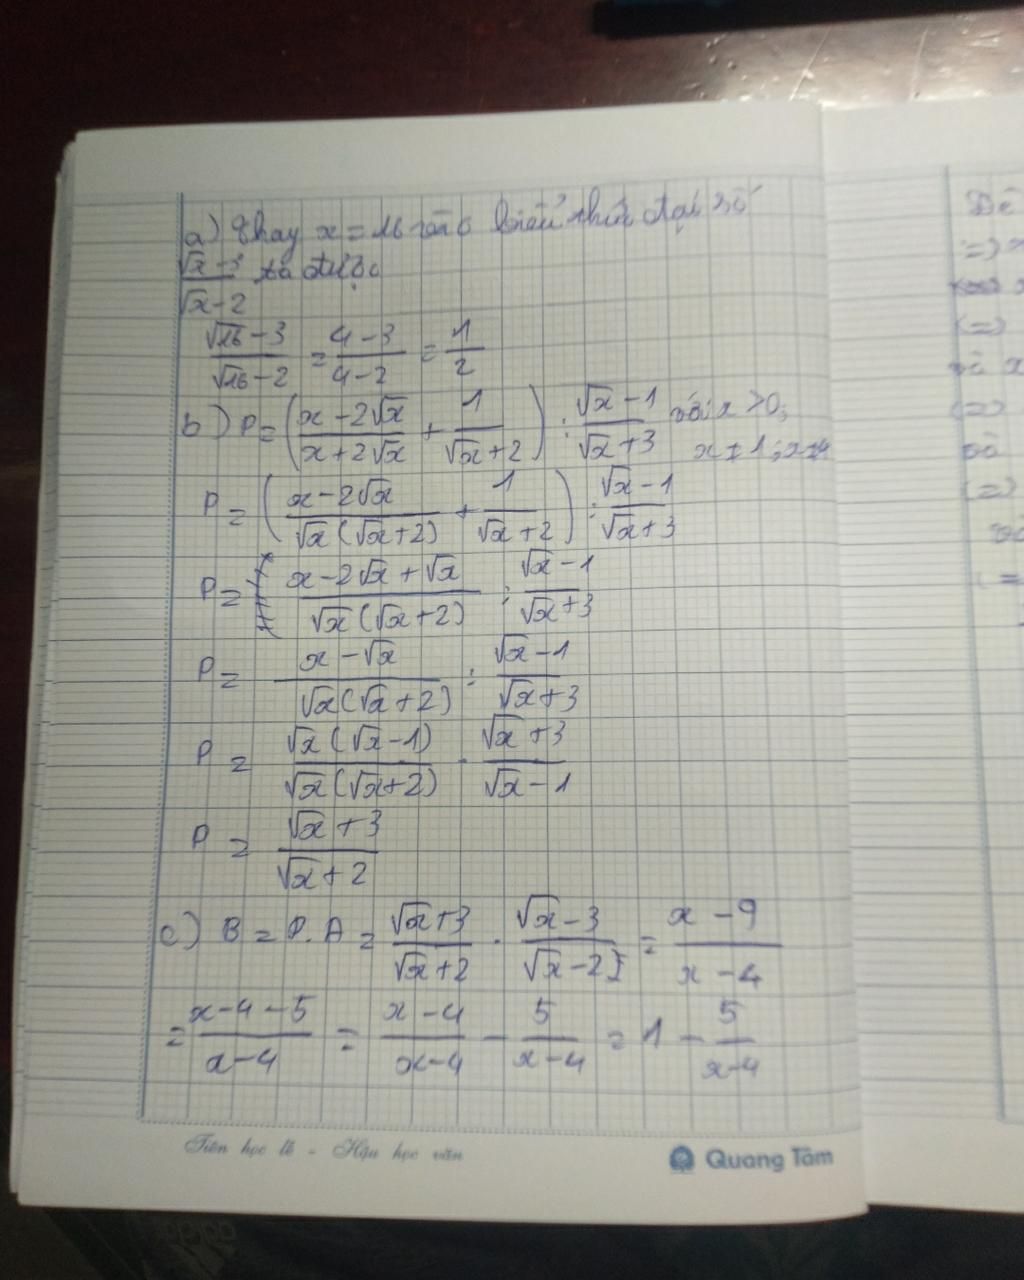 a) Thay x = 16 vào biểu thức đại số
(√x - 3)/(√x - 2) ta được
(√16 - 3)/(√16 - 2) = (4 - 3)/(4 - 2) = 1/2
b) P = ((x - 2√x)/(x + 2√x) + 1/(√x + 2)) : (√x - 1)/(√x + 3) với x > 0; x ≠ 1; x ≠ 4
P = ((x - 2√x)/(√x(√x + 2)) + 1/(√x + 2)) : (√x - 1)/(√x + 3)
P = (x - 2√x + √x)/(√x(√x + 2)) : (√x - 1)/(√x + 3)
P = (x - √x)/(√x(√x + 2)) : (√x - 1)/(√x + 3)
P = (√x(√x - 1))/(√x(√x + 2)) · (√x + 3)/(√x - 1)
P = (√x + 3)/(√x + 2)
c) B = P.A = (√x + 3)/(√x + 2) · (√x - 3)/(√x - 2) = (x - 9)/(x - 4)
= (x - 4 - 5)/(x - 4) = (x - 4)/(x - 4) - 5/(x - 4) = 1 - 5/(x - 4)
Tiên học lễ - Hậu học văn
Quang Tâm
Để
=) x
(=)
và x
(=)
và
(=)